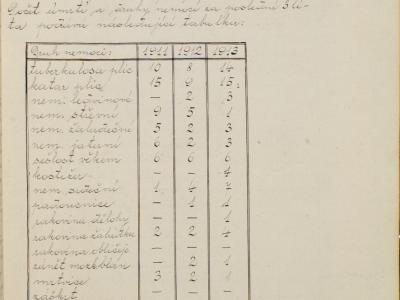 Počet úmrtí a druhy nemocí za poslední 3 lé-
ta počtává následující tabulka:
Druh nemoci: 1911 1912 1913
tuberkulosa plic 10 8 14
katar plic 15 9 15
nem. ledvinové — 2 3
nem. střevní 9 5 1
nem. žaludeční 5 2 3
nem. jaterní 6 2 3
sešlost věkem 6 6 6
kostižer — — 4
nem. srdeční 1 4
padoucnice — 1 1
rakovina dělohy — — 1
rakovina žaludku 2 2 4
rakovina obličeje — — —
zánět mozkoblán — 2 1
mrtvice 3 2 1
záškrt — — —